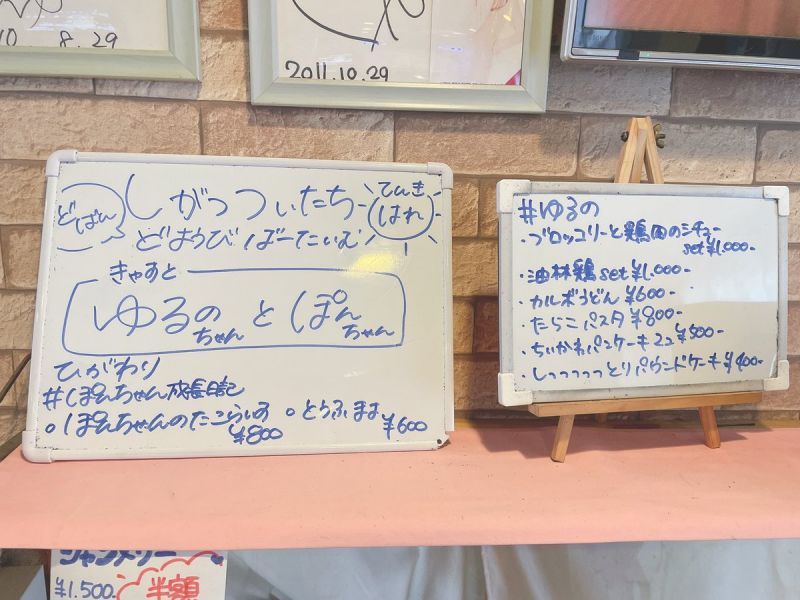 8.29
2011.10.29
どばん
しがつ ついたち
てんき
はれ
どようび ばーたいむ
きゃすと
ゆるのちゃん と ぽんちゃん
ひがわり
#ぽんちゃん成長日記
○ぽんちゃんのたこらいす ¥800
○とうふ ¥600
#ゆるの
・ブロッコリーと鶏肉のシチュー
set¥1.000-
・油林鶏 set¥1.000-
・カルボうどん ¥600-
・たらこパスタ ¥800-
・ちいかわパンケーキ ¥500-
・しっっっっっとりパウンドケーキ ¥400-
シャンメリー
¥1.500
半額